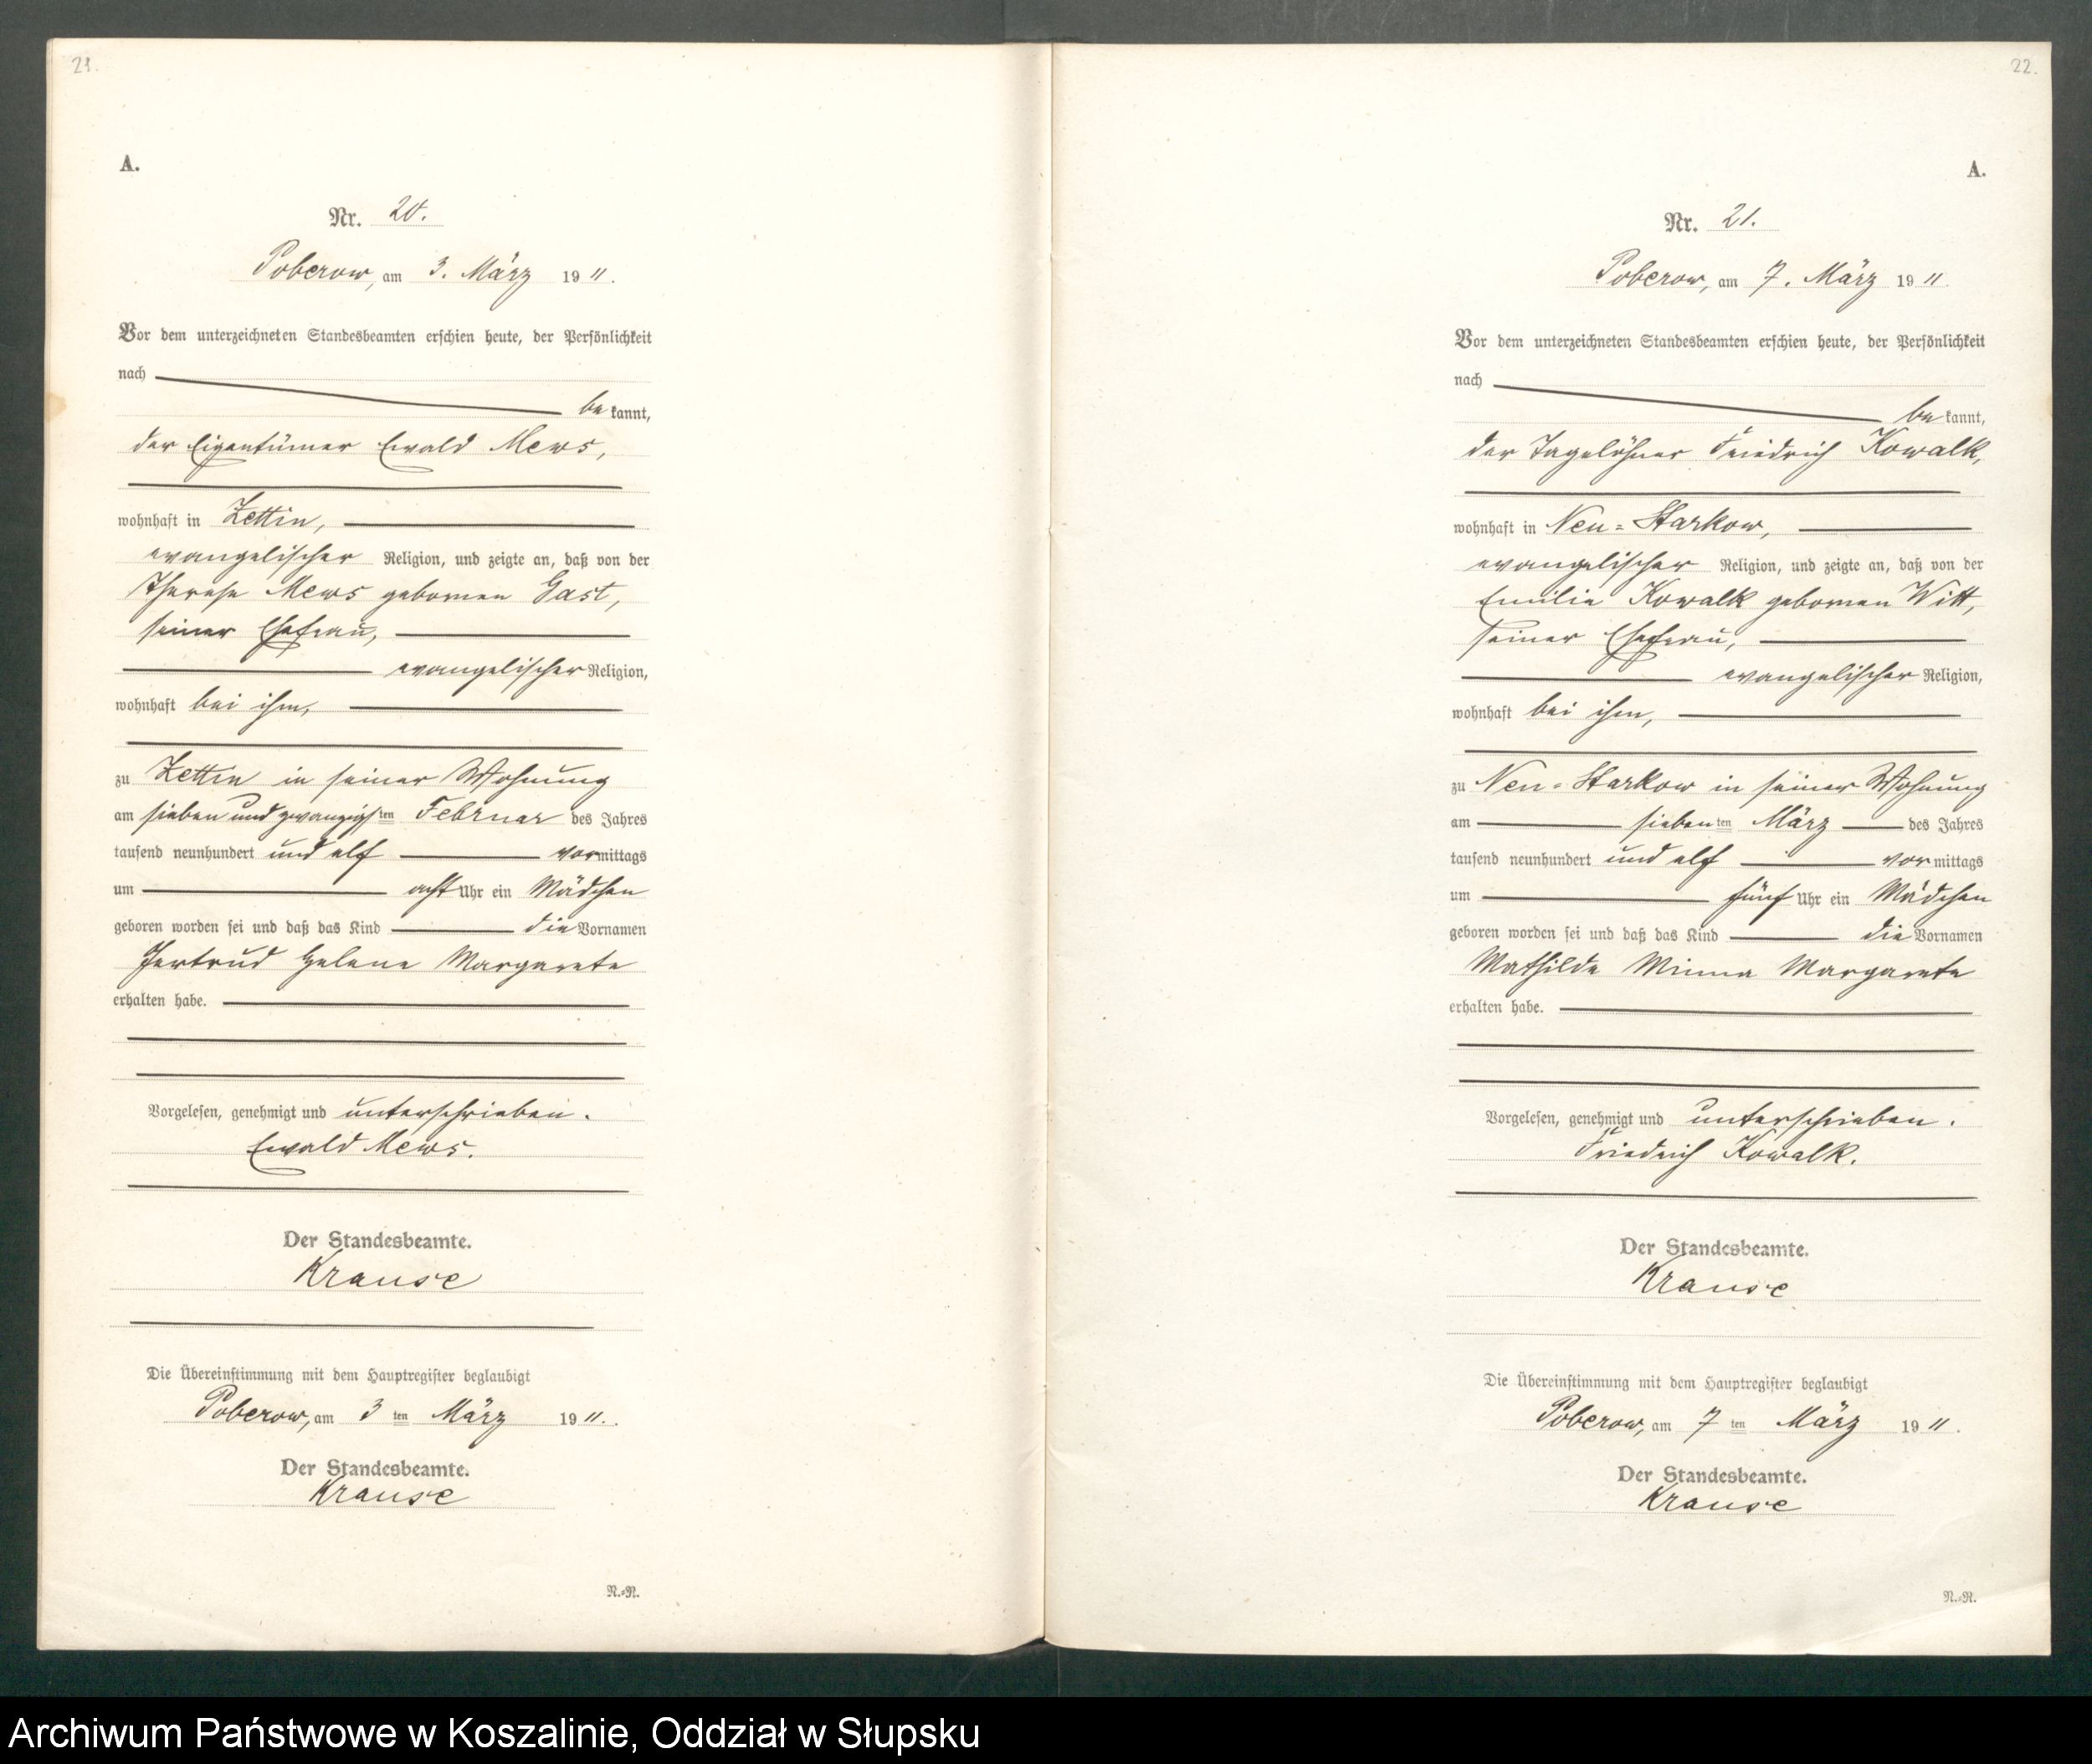 21.
A.
Nr. 20.
Poberow, am 3. März 1911.
Vor dem unterzeichneten Standesbeamten erschien heute, der Persönlichkeit
nach
bekannt,
der Eigentümer Ewald Mews,
wohnhaft in Zettin,
evangelischer Religion, und zeigte an, daß von der
Therese Mews gebornen Gast,
seiner Ehefrau,
evangelischer Religion,
wohnhaft bei ihm,
zu Zettin in seiner Wohnung
am sieben und zwanzigsten Februar des Jahres
tausend neunhundert und elf vormittags
um acht Uhr ein Mädchen
geboren worden sei und daß das Kind die Vornamen
Gertrud Helene Margarete
erhalten habe.
Vorgelesen, genehmigt und unterschrieben.
Ewald Mews.
Der Standesbeamte.
Krause
Die Übereinstimmung mit dem Hauptregister beglaubigt
Poberow, am 3ten März 1911.
Der Standesbeamte.
Krause
N.=R.
22.
A.
Nr. 21.
Poberow, am 7. März 1911.
Vor dem unterzeichneten Standesbeamten erschien heute, der Persönlichkeit
nach
bekannt,
der Tagelöhner Friedrich Kowalk,
wohnhaft in Neu=Starkow,
evangelischer Religion, und zeigte an, daß von der
Emilie Kowalk gebornen Witt,
seiner Ehefrau,
evangelischer Religion,
wohnhaft bei ihm,
zu Neu=Starkow in seiner Wohnung
am siebenten März des Jahres
tausend neunhundert und elf vormittags
um fünf Uhr ein Mädchen
geboren worden sei und daß das Kind die Vornamen
Mathilde Minna Margarete
erhalten habe.
Vorgelesen, genehmigt und unterschrieben.
Friedrich Kowalk.
Der Standesbeamte.
Krause
Die Übereinstimmung mit dem Hauptregister beglaubigt
Poberow, am 7ten März 1911.
Der Standesbeamte.
Krause
N.=R.
Archiwum Państwowe w Koszalinie, Oddział w Słupsku